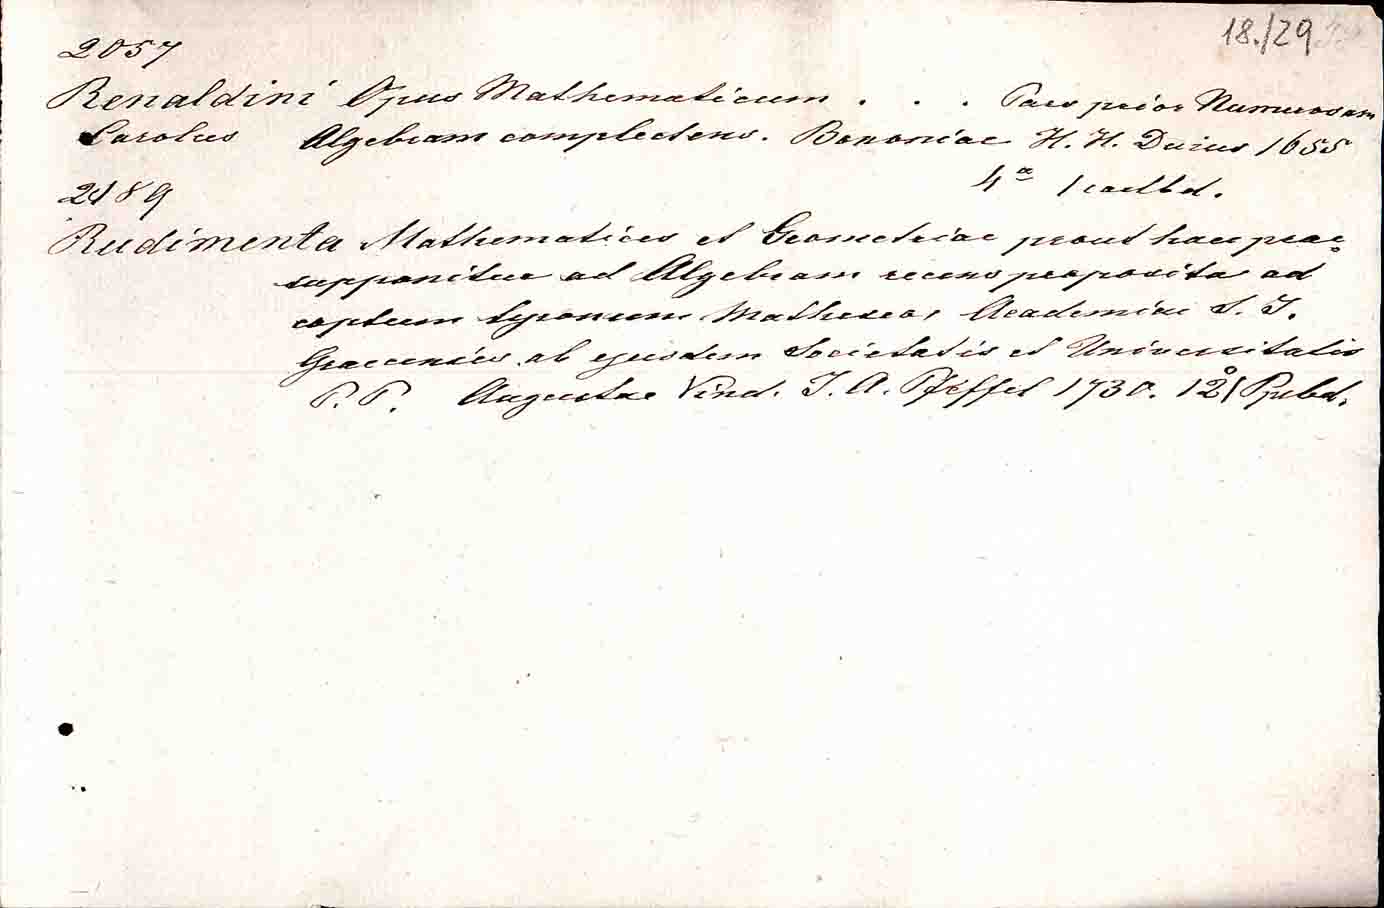 18./29
2057
Renaldini Opus Mathematicum . . . Pars prior Numerosam
Carolus Algebram complectens. Bononiae H. H. Duius 1655
4ª
2189
Rudimenta Mathematices et Geometriae prout haec prae=
supponitur ad Algebram recens proposita ad
captum tyronum Matheseos Academiae S. J.
Graecensis ab ejusdem Societatis et Universitatis
P. P. Augustae Vind. J. A. Pfeffel 1730. 12° 1 Ppbd.